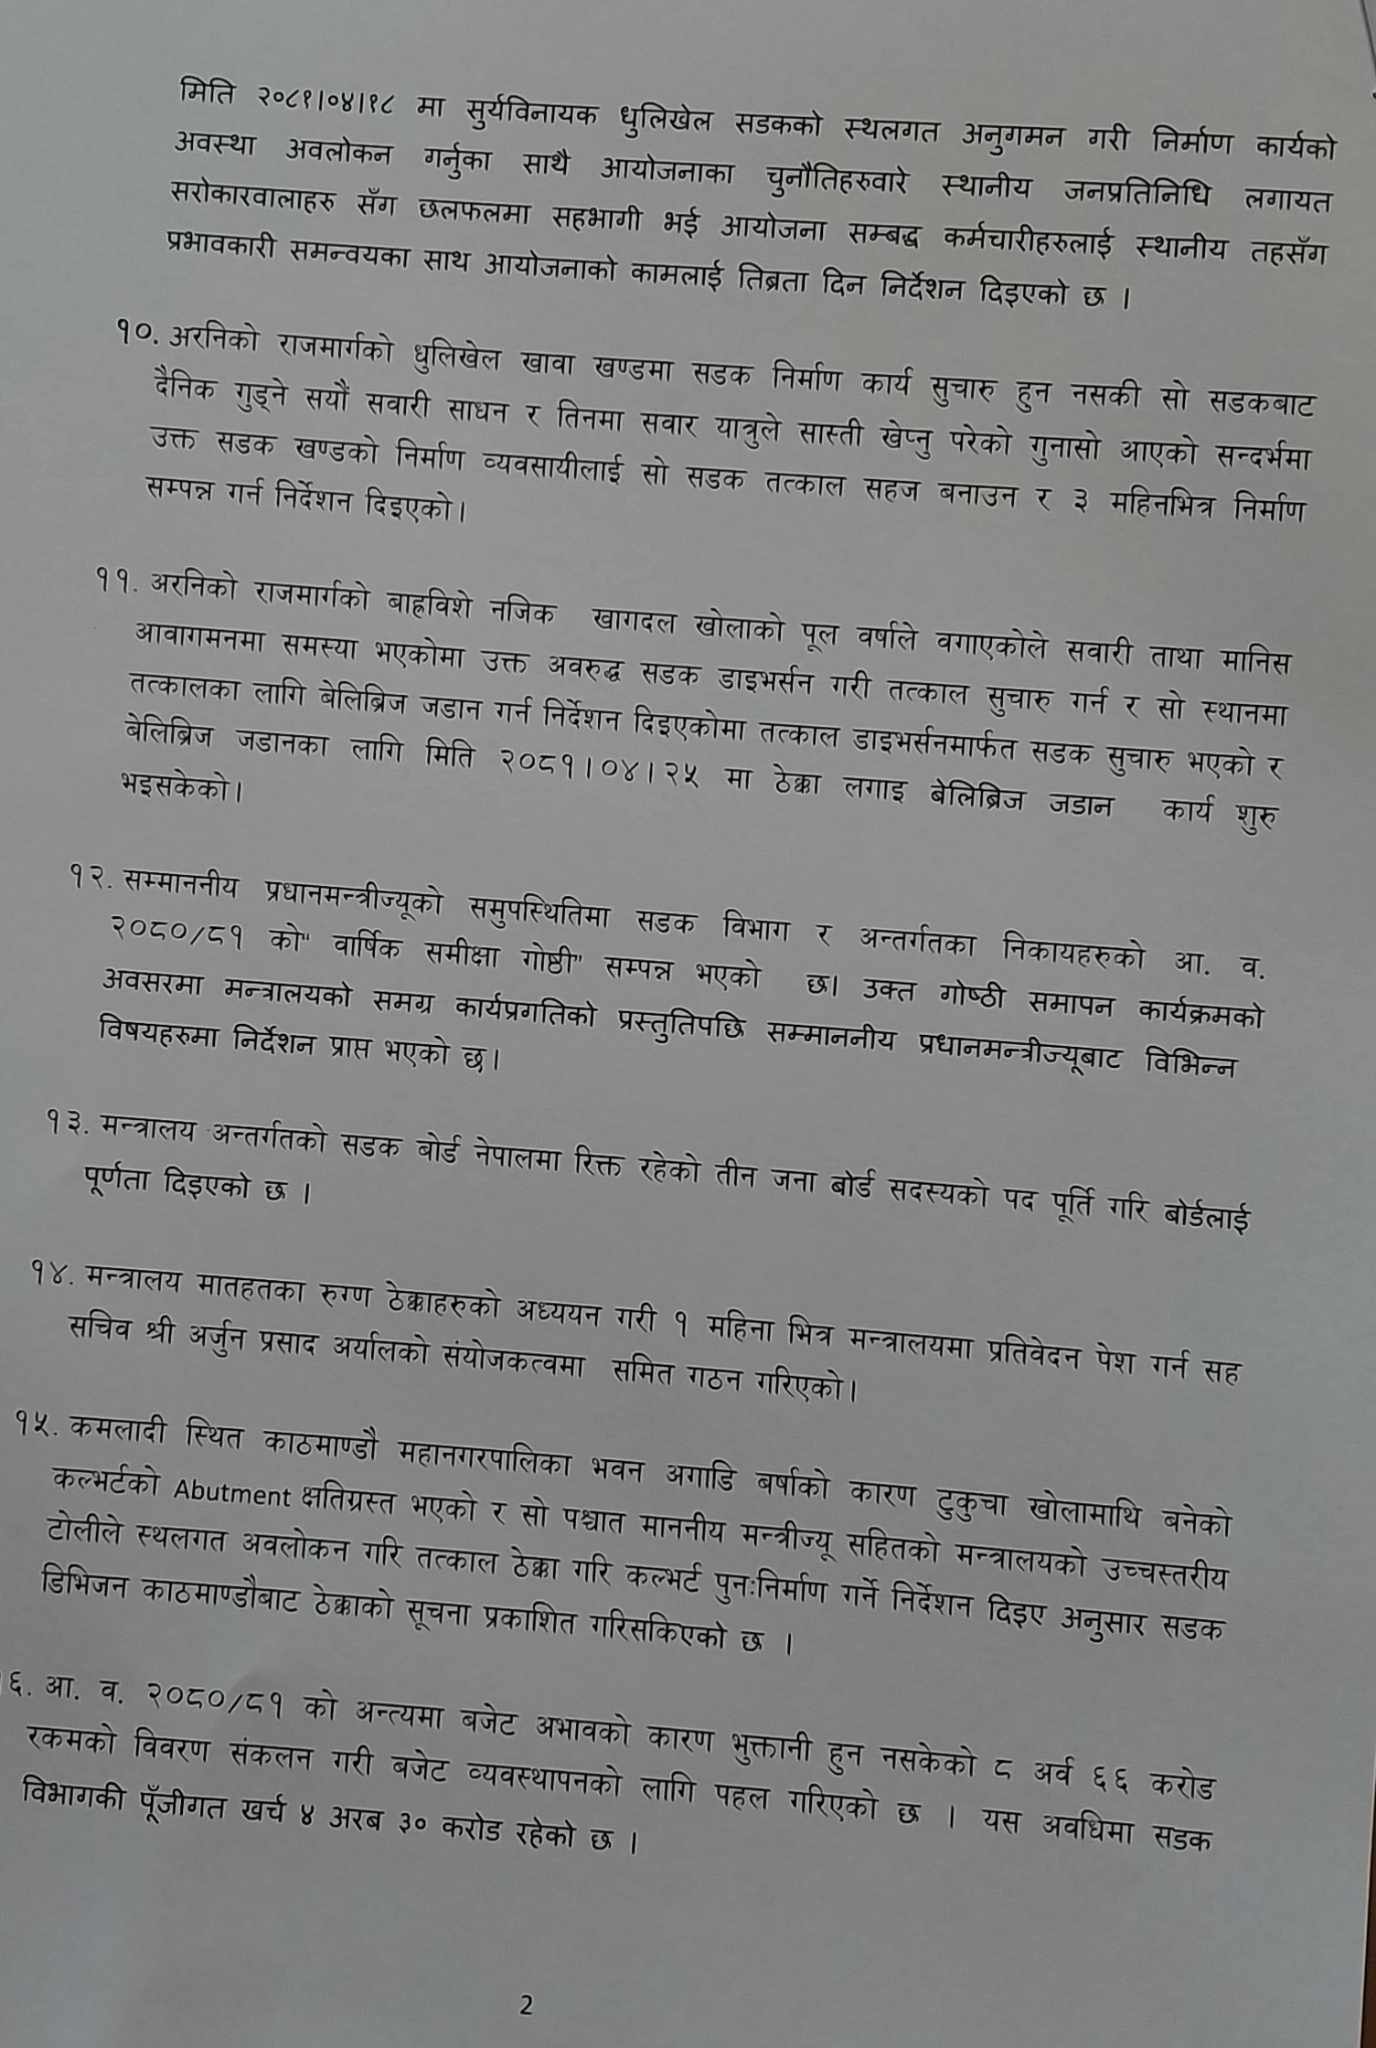 मिति २०८१।०४।१८ मा सुर्यविनायक धुलिखेल सडकको स्थलगत अनुगमन गरी निर्माण कार्यको
अवस्था अवलोकन गर्नुका साथै आयोजनाका चुनौतिहरुवारे स्थानीय जनप्रतिनिधि लगायत
सरोकारवालाहरु सँग छलफलमा सहभागी भई आयोजना सम्बद्ध कर्मचारीहरुलाई स्थानीय तहसँग
प्रभावकारी समन्वयका साथ आयोजनाको कामलाई तिब्रता दिन निर्देशन दिइएको छ ।
१०. अरनिको राजमार्गको धुलिखेल खावा खण्डमा सडक निर्माण कार्य सुचारु हुन नसकी सो सडकबाट
दैनिक गुड्ने सयौं सवारी साधन र तिनमा सवार यात्रुले सास्ती खेप्नु परेको गुनासो आएको सन्दर्भमा
उक्त सडक खण्डको निर्माण व्यवसायीलाई सो सडक तत्काल सहज बनाउन र ३ महिनभित्र निर्माण
सम्पन्न गर्न निर्देशन दिइएको।
११. अरनिको राजमार्गको बाह्रविशे नजिक खागदल खोलाको पूल वर्षाले वगाएकोले सवारी ताथा मानिस
आवागमनमा समस्या भएकोमा उक्त अवरुद्ध सडक डाइभर्सन गरी तत्काल सुचारु गर्न र सो स्थानमा
तत्कालका लागि बेलिब्रिज जडान गर्न निर्देशन दिइएकोमा तत्काल डाइभर्सनमार्फत सडक सुचारु भएको र
बेलिब्रिज जडानका लागि मिति २०८१।०४।२५ मा ठेक्का लगाइ बेलिब्रिज जडान कार्य शुरु
भइसकेको।
१२. सम्माननीय प्रधानमन्त्रीज्यूको समुपस्थितिमा सडक विभाग र अन्तर्गतका निकायहरुको आ. व.
२०८०/८१ को" वार्षिक समीक्षा गोष्ठी" सम्पन्न भएको छ। उक्त गोष्ठी समापन कार्यक्रमको
अवसरमा मन्त्रालयको समग्र कार्यप्रगतिको प्रस्तुतिपछि सम्माननीय प्रधानमन्त्रीज्यूबाट विभिन्न
विषयहरुमा निर्देशन प्राप्त भएको छ।
१३. मन्त्रालय अन्तर्गतको सडक बोर्ड नेपालमा रिक्त रहेको तीन जना बोर्ड सदस्यको पद पूर्ति गरि बोर्डलाई
पूर्णता दिइएको छ ।
१४. मन्त्रालय मातहतका रुग्ण ठेक्काहरुको अध्ययन गरी १ महिना भित्र मन्त्रालयमा प्रतिवेदन पेश गर्न सह
सचिव श्री अर्जुन प्रसाद अर्यालको संयोजकत्वमा समित गठन गरिएको।
१५. कमलादी स्थित काठमाण्डौ महानगरपालिका भवन अगाडि बर्षाको कारण टुकुचा खोलामाथि बनेको
कल्भर्टको Abutment क्षतिग्रस्त भएको र सो पश्चात माननीय मन्त्रीज्यू सहितको मन्त्रालयको उच्चस्तरीय
टोलीले स्थलगत अवलोकन गरि तत्काल ठेक्का गरि कल्भर्ट पुनःनिर्माण गर्ने निर्देशन दिइए अनुसार सडक
डिभिजन काठमाण्डौबाट ठेक्काको सूचना प्रकाशित गरिसकिएको छ ।
१६. आ. व. २०८०/८१ को अन्त्यमा बजेट अभावको कारण भुक्तानी हुन नसकेको ८ अर्व ६६ करोड
रकमको विवरण संकलन गरी बजेट व्यवस्थापनको लागि पहल गरिएको छ । यस अवधिमा सडक
विभागकी पूँजीगत खर्च ४ अरब ३० करोड रहेको छ ।
2